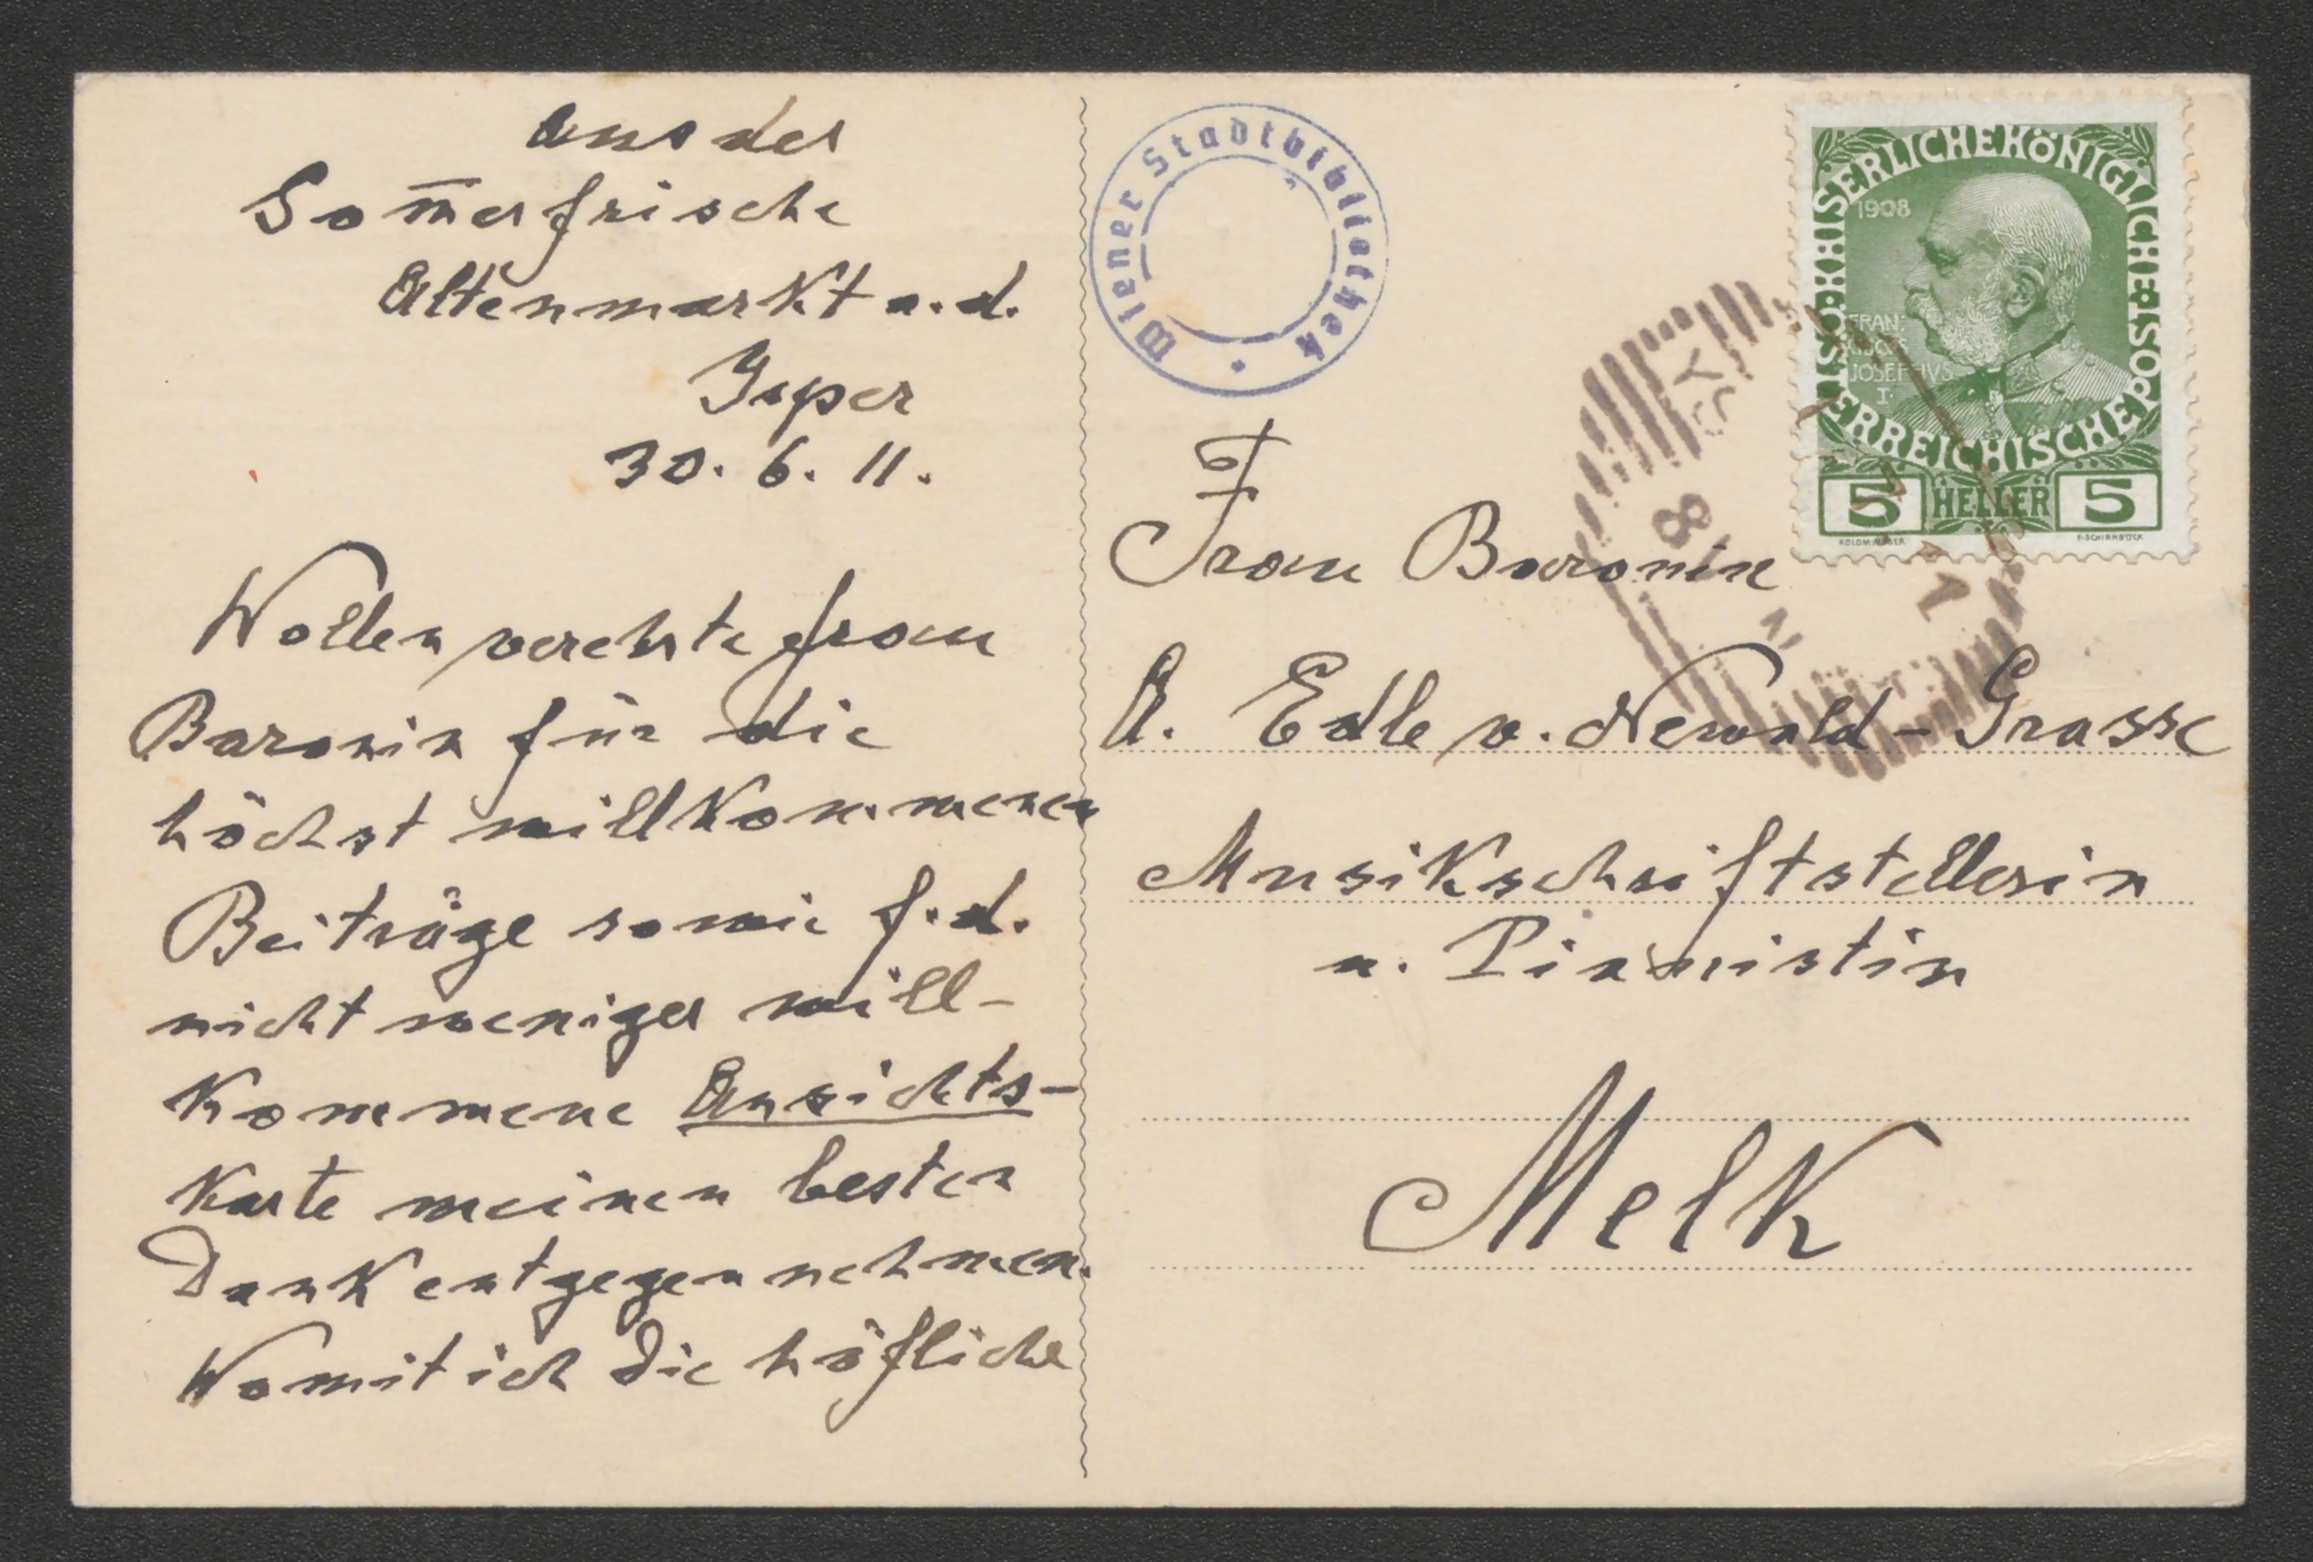 Aus der
Som̄erfrische
Altenmarkt a. d.
Ysper
30. 6. 11.
Wollen verehrte Frau
Baronin für die
höchst willkommenen
Beiträge sowie f. d.
nicht weniger will-
kommene Ansichts-
karte meinen besten
Dank entgegennehmen.
Womit ich die höfliche
Wiener Stadtbibliothek
KAISERLICHE KÖNIGLICHE
ÖSTERREICHISCHE POST
1908
FRAN
JOSEPHVS
I.
5 HELLER 5
Frau Baronin
A. Edle v. Newald-Grasse
Musikschriftstellerin
u. Pianistin
Melk